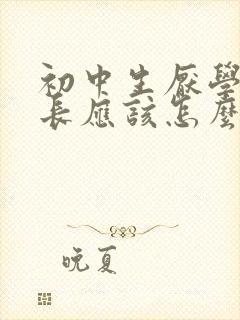 初中生厭學
長應該怎麼
晚夏